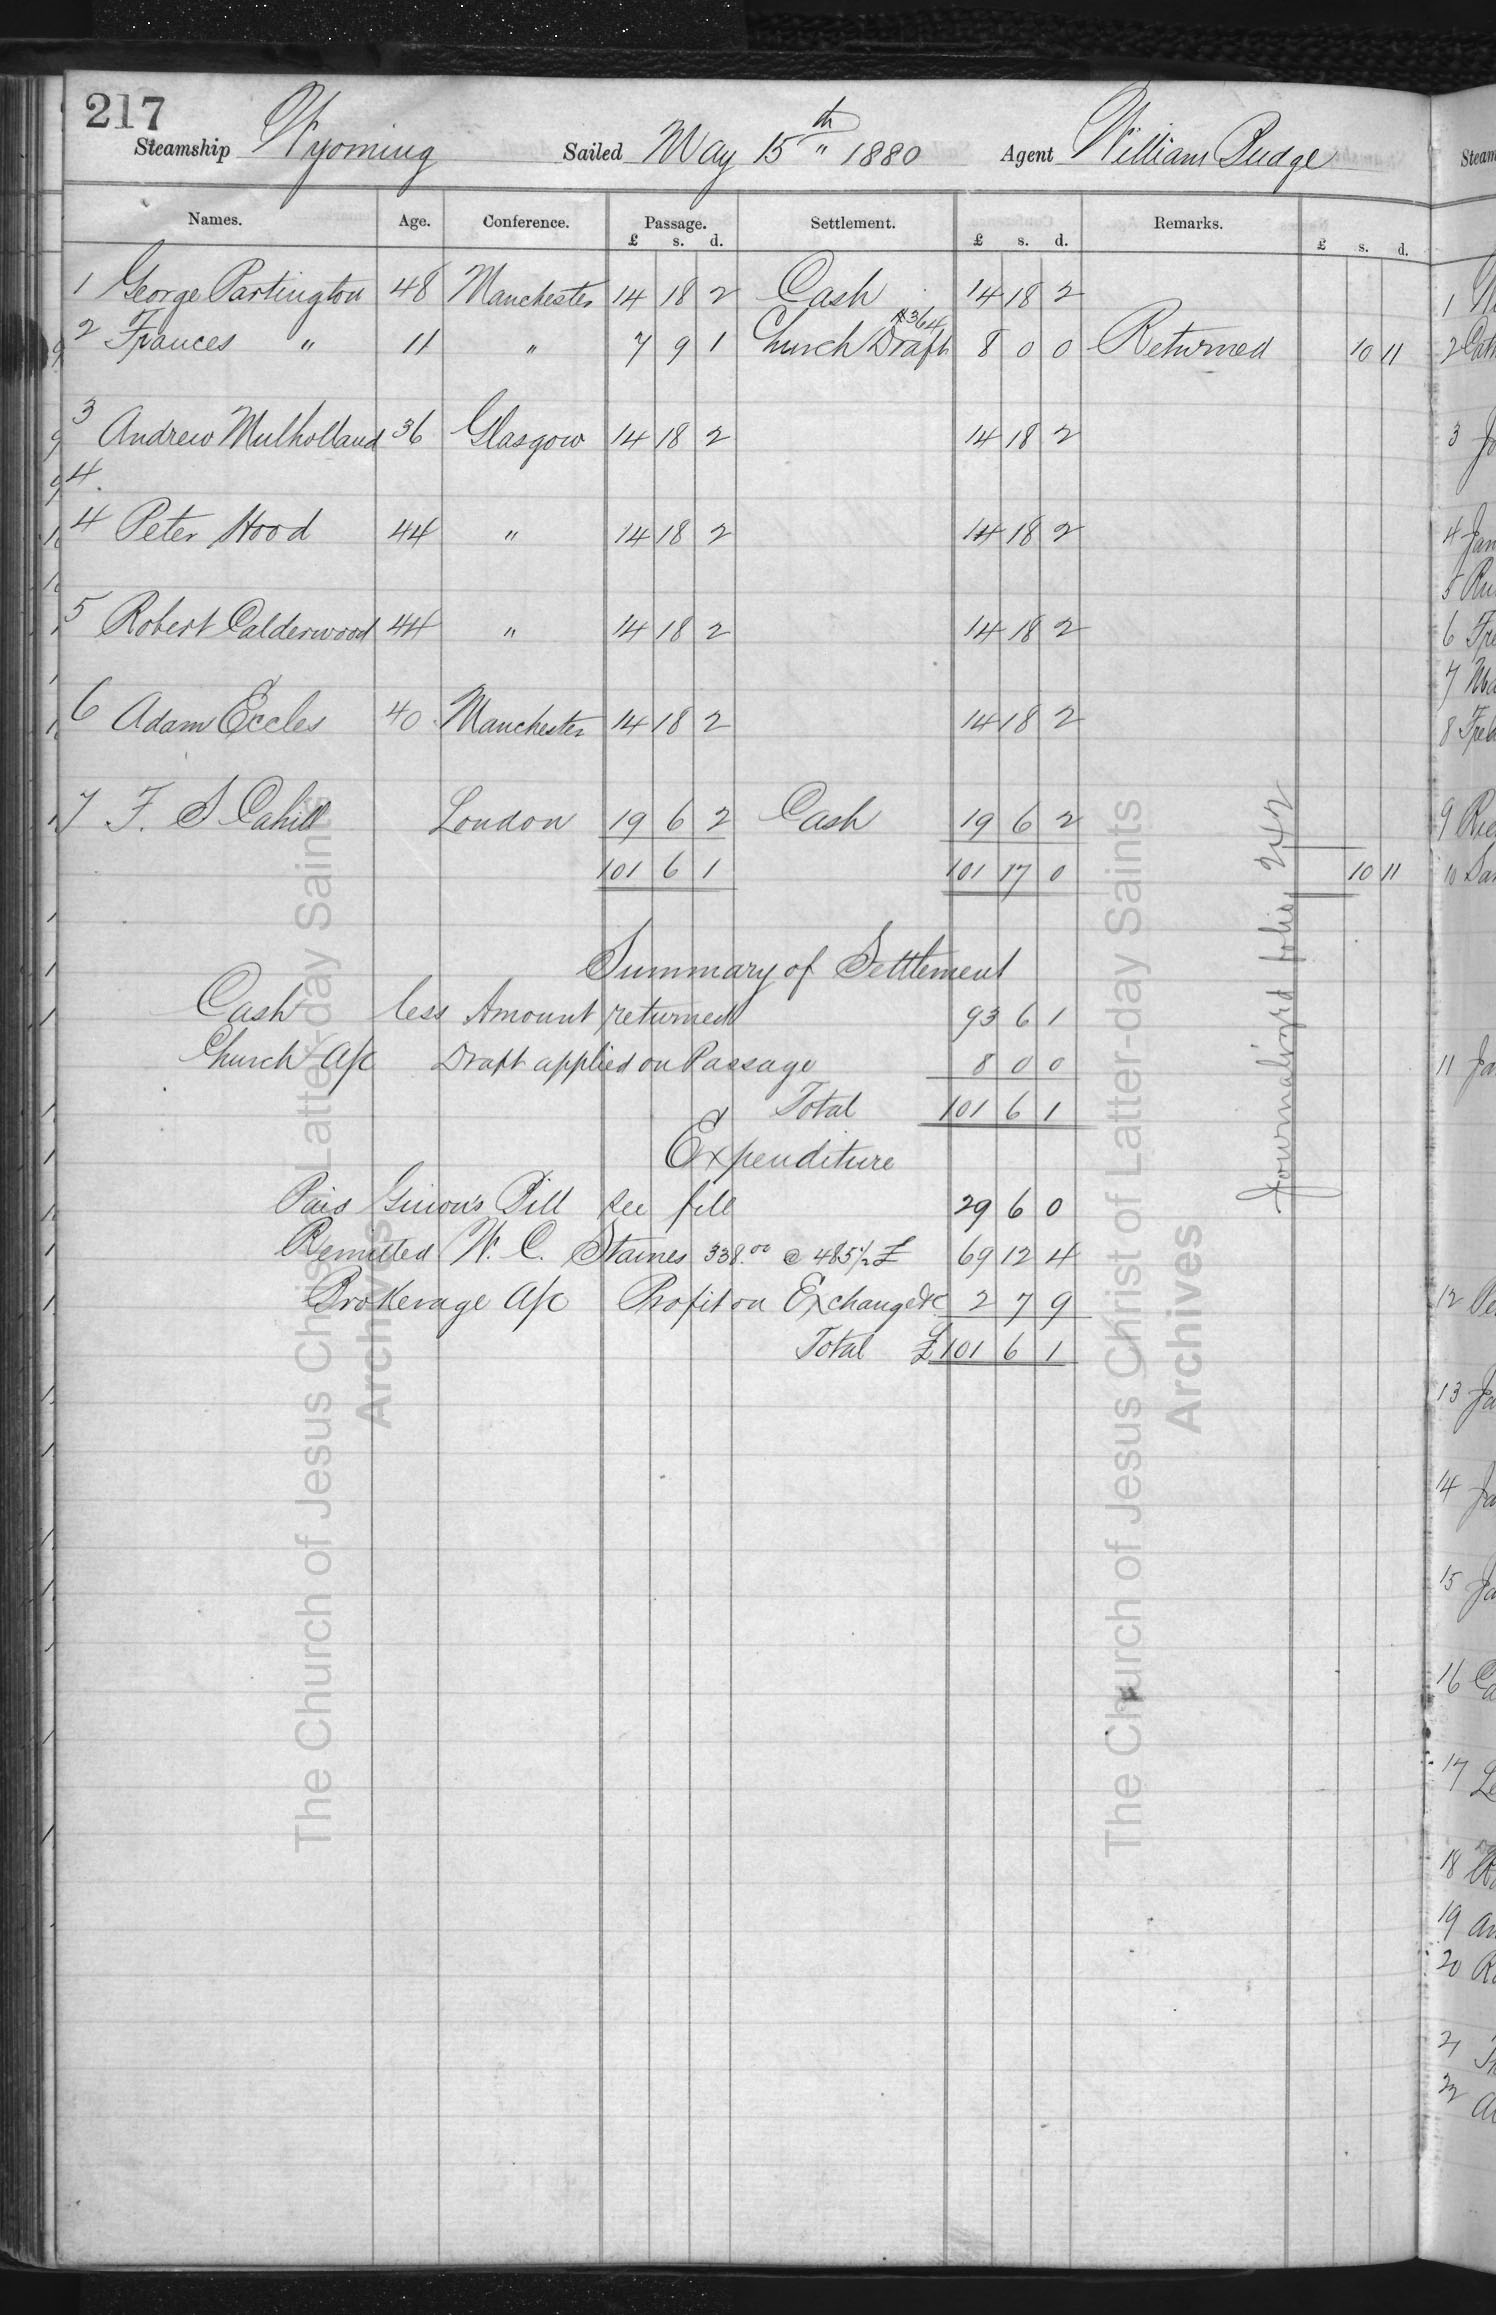 217
Steamship Wyoming Sailed May 15th " 1880 Agent William Budge
Names. Age. Conference. Passage. Settlement. Remarks.
£ s. d. £ s. d. £ s. d.
1 George Partington 48 Manchester 14 18 2 Cash 14 18 2
2 Frances " 11 " 7 9 1 Church Draft #364 8 0 0 Returned 10 11
3 Andrew Mulholland 36 Glasgow 14 18 2 14 18 2
4.
4 Peter Hood 44 " 14 18 2 14 18 2
5 Robert Calderwood 44 " 14 18 2 14 18 2
6 Adam Eccles 40 Manchester 14 18 2 14 18 2
7 F. S Cahill London 19 6 2 Cash 19 6 2
101 6 1 101 17 0 10 11
Journalized folio 242
Summary of Settlement
Cash less Amount returned 93 6 1
Church A/c Draft applied on Passage 8 0 0
Total 101 6 1
Expenditure
Paid Guion's Bill see file 29 6 0
Remitted W. C. Staines 338.00 @ 485 1/2 £ 69 12 4
Brokerage A/c Profit on Exchange &c 2 7 9
Total £101 6 1
The Church of Jesus Christ of Latter-day Saints
Archives
The Church of Jesus Christ of Latter-day Saints
Archives
Steam
1
2
3
4
5
6
7
8
9
10
11
12
13
14
15
16
17
18
19
20
21
22